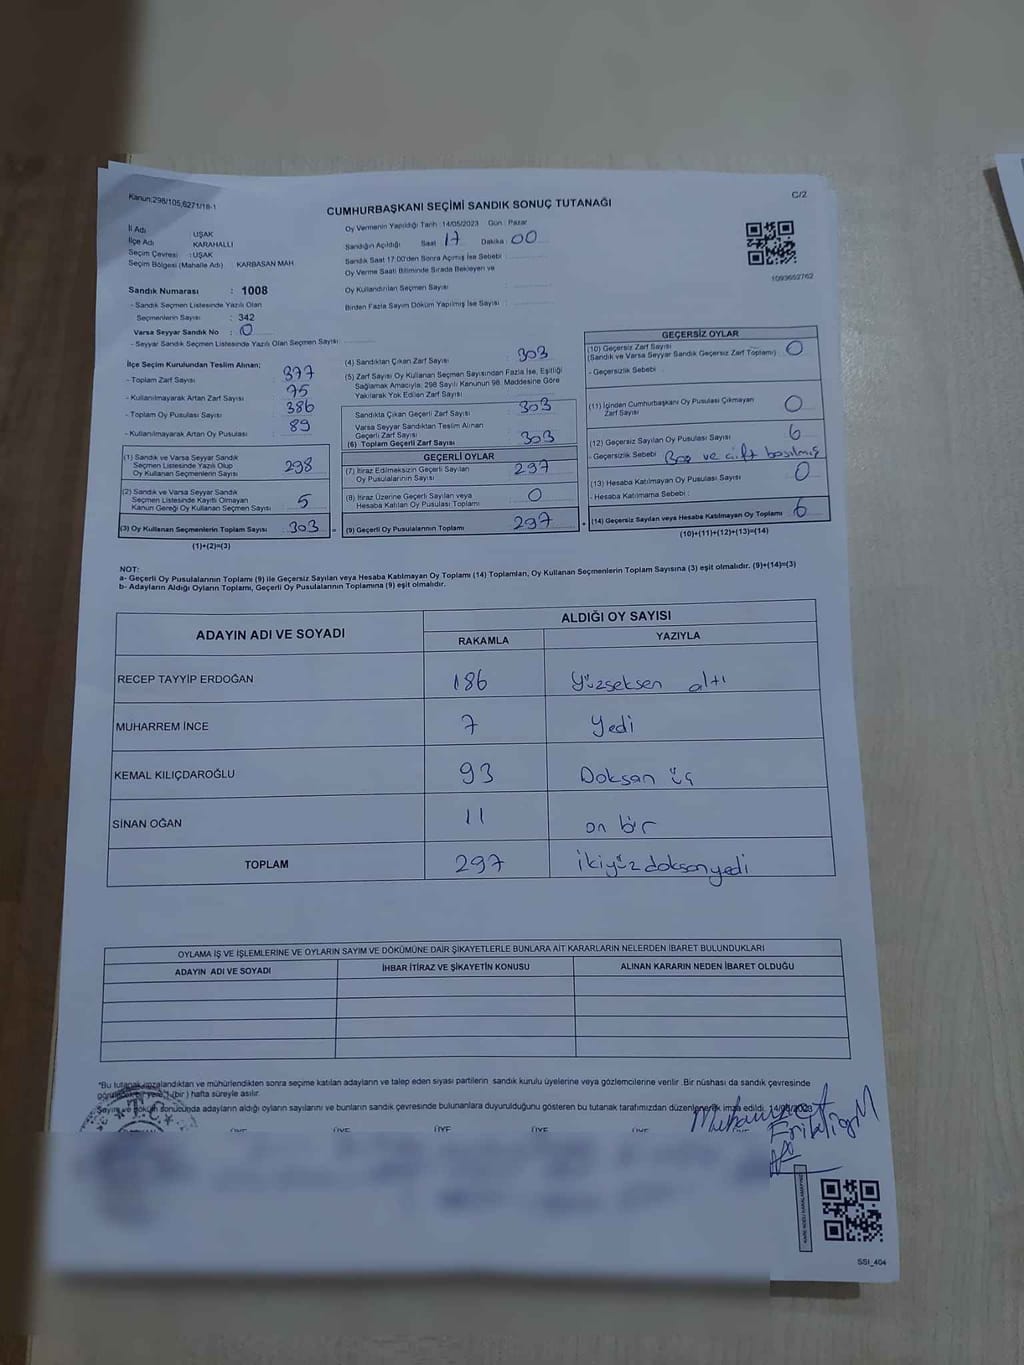 Kanun:298/105,6271/18-1
C/2
CUMHURBAŞKANI SEÇİMİ SANDIK SONUÇ TUTANAĞI
İl Adı : UŞAK
İlçe Adı : KARAHALLI
Seçim Çevresi : UŞAK
Seçim Bölgesi (Mahalle Adı) : KARBASAN MAH
Sandık Numarası : 1008
- Sandık Seçmen Listesinde Yazılı Olan
Seçmenlerin Sayısı : 342
Varsa Seyyar Sandık No : 0
- Seyyar Sandık Seçmen Listesinde Yazılı Olan Seçmen Sayısı :
Oy Vermenin Yapıldığı Tarih : 14/05/2023 Gün : Pazar
Sandığın Açıldığı Saat 17 Dakika 00
Sandık Saat 17:00'den Sonra Açılmış İse Sebebi :
Oy Verme Saati Bitiminde Sırada Bekleyen ve
Oy Kullandırılan Seçmen Sayısı :
Birden Fazla Sayım Döküm Yapılmış İse Sayısı :
1093652762
İlçe Seçim Kurulundan Teslim Alınan:
- Toplam Zarf Sayısı : 377
- Kullanılmayarak Artan Zarf Sayısı : 75
- Toplam Oy Pusulası Sayısı : 386
- Kullanılmayarak Artan Oy Pusulası : 89
(1) Sandık ve Varsa Seyyar Sandık
Seçmen Listesinde Yazılı Olup
Oy Kullanan Seçmenlerin Sayısı 298
(2) Sandık ve Varsa Seyyar Sandık
Seçmen Listesinde Kayıtlı Olmayan
Kanun Gereği Oy Kullanan Seçmen Sayısı 5
(3) Oy Kullanan Seçmenlerin Toplam Sayısı 303 =
(1)+(2)=(3)
(4) Sandıktan Çıkan Zarf Sayısı : 303
(5) Zarf Sayısı Oy Kullanan Seçmen Sayısından Fazla İse, Eşitliği
Sağlamak Amacıyla, 298 Sayılı Kanunun 98. Maddesine Göre
Yakılarak Yok Edilen Zarf Sayısı :
Sandıkta Çıkan Geçerli Zarf Sayısı : 303
Varsa Seyyar Sandıktan Teslim Alınan
Geçerli Zarf Sayısı :
(6) Toplam Geçerli Zarf Sayısı : 303
GEÇERLİ OYLAR
(7) İtiraz Edilmeksizin Geçerli Sayılan
Oy Pusulalarının Sayısı : 297
(8) İtiraz Üzerine Geçerli Sayılan veya
Hesaba Katılan Oy Pusulası Toplamı : 0
(9) Geçerli Oy Pusulalarının Toplamı : 297 +
GEÇERSİZ OYLAR
(10) Geçersiz Zarf Sayısı
(Sandık ve Varsa Seyyar Sandık Geçersiz Zarf Toplamı) : 0
- Geçersizlik Sebebi :
(11) İçinden Cumhurbaşkanı Oy Pusulası Çıkmayan
Zarf Sayısı : 0
(12) Geçersiz Sayılan Oy Pusulası Sayısı : 6
- Geçersizlik Sebebi : Boş ve çift basılmış
(13) Hesaba Katılmayan Oy Pusulası Sayısı : 0
- Hesaba Katılmama Sebebi :
(14) Geçersiz Sayılan veya Hesaba Katılmayan Oy Toplamı : 6
(10)+(11)+(12)+(13)=(14)
NOT:
a- Geçerli Oy Pusulalarının Toplamı (9) ile Geçersiz Sayılan veya Hesaba Katılmayan Oy Toplamı (14) Toplamları, Oy Kullanan Seçmenlerin Toplam Sayısına (3) eşit olmalıdır. (9)+(14)=(3)
b- Adayların Aldığı Oyların Toplamı, Geçerli Oy Pusulalarının Toplamına (9) eşit olmalıdır.
ADAYIN ADI VE SOYADI
ALDIĞI OY SAYISI
RAKAMLA YAZIYLA
RECEP TAYYİP ERDOĞAN 186 Yüzseksen altı
MUHARREM İNCE 7 Yedi
KEMAL KILIÇDAROĞLU 93 Doksan üç
SİNAN OĞAN 11 on bir
TOPLAM 297 ikiyüzdoksanyedi
OYLAMA İŞ VE İŞLEMLERİNE VE OYLARIN SAYIM VE DÖKÜMÜNE DAİR ŞİKAYETLERLE BUNLARA AİT KARARLARIN NELERDEN İBARET BULUNDUKLARI
ADAYIN ADI VE SOYADI İHBAR İTİRAZ VE ŞİKAYETİN KONUSU ALINAN KARARIN NEDEN İBARET OLDUĞU
"Bu tutanak imzalandıktan ve mühürlendikten sonra seçime katılan adayların ve talep eden siyasi partilerin sandık kurulu üyelerine veya gözlemcilerine verilir. Bir nüshası da sandık çevresinde
yere" (bir) hafta süreyle asılır.
döküm sonucunda adayların aldığı oyların sayılarını ve bunların sandık çevresinde bulunanlara duyurulduğunu gösteren bu tutanak tarafımızdan düzenlenerek imza edildi. 14/05/2023
T.C.
ÜYE ÜYE ÜYE ÜYE ÜYE
SSI_404